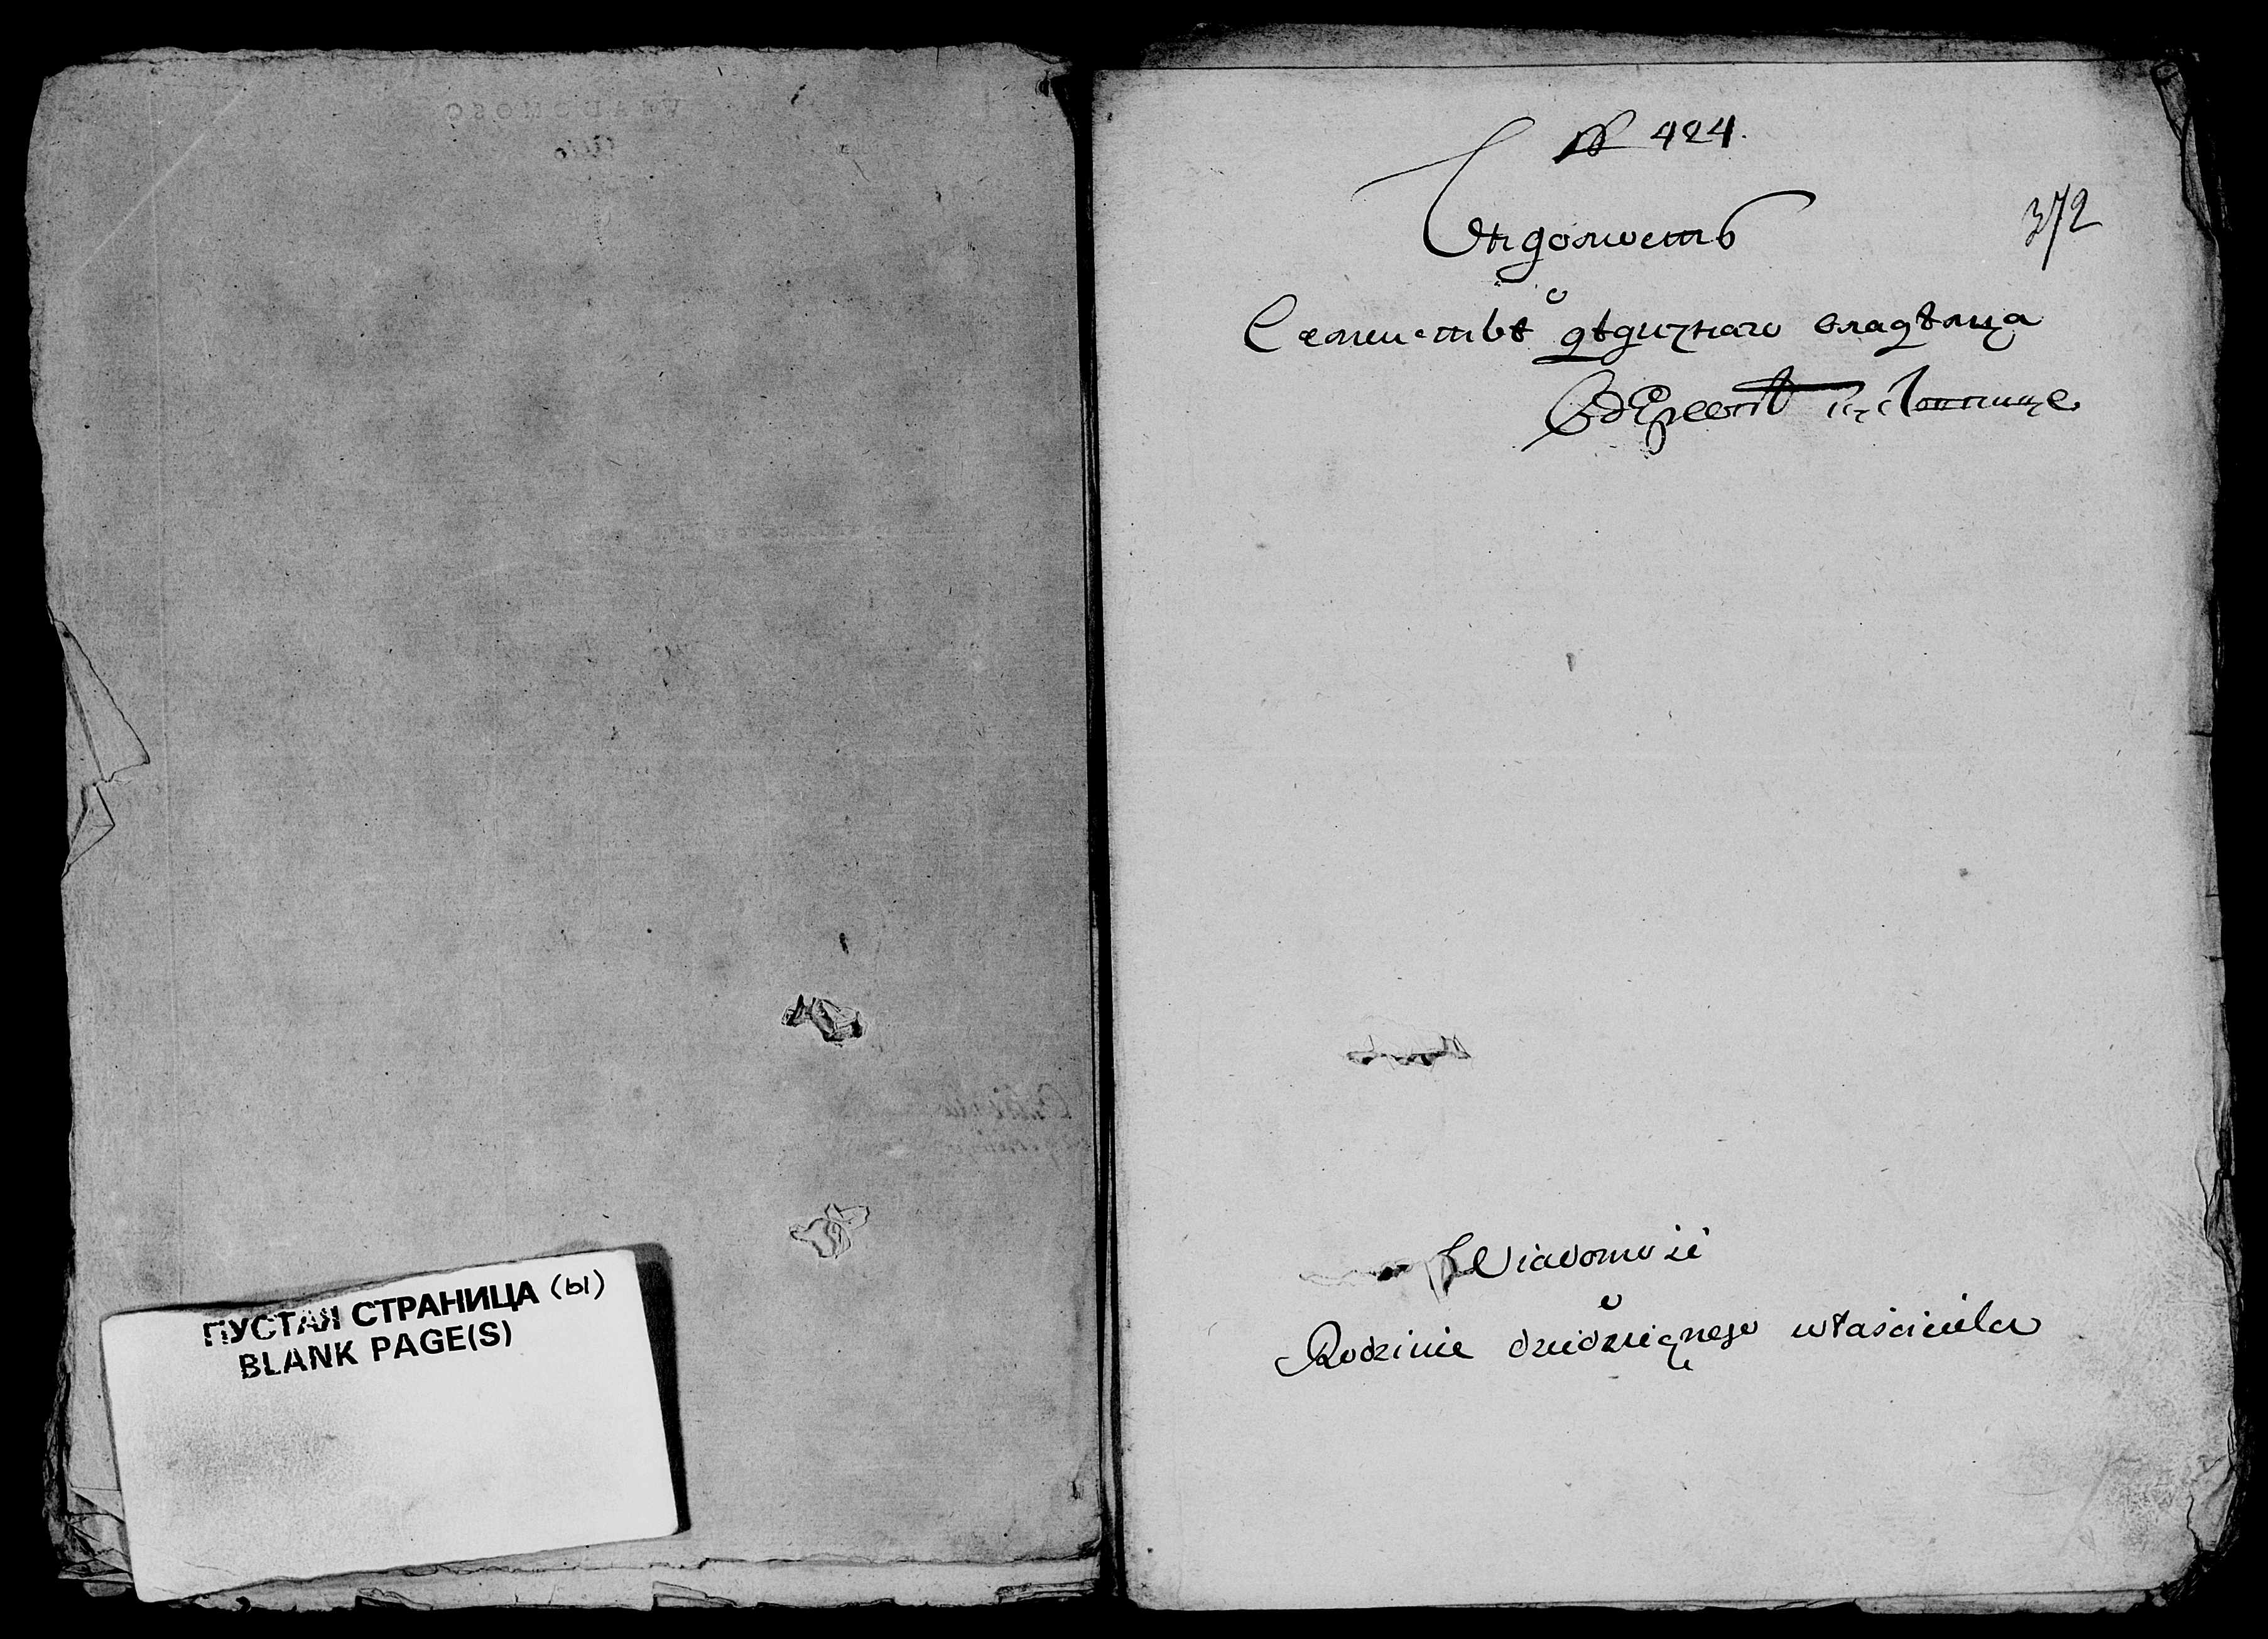 ПУСТАЯ СТРАНИЦА (ы)
BLANK PAGE(S)
№ 424.
372
Вѣдомость
о
Семействѣ дѣдизнаго владѣльца
Wiadomość
o
Rodzinie dziedzicznego właściciela